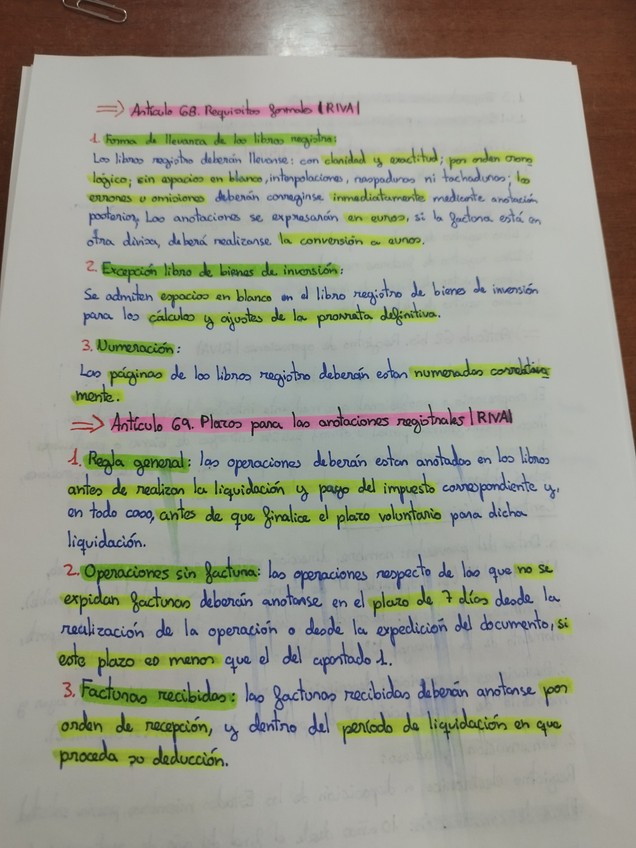 ⇒ Artículo 68. Requisitos formales |RIVA|
1. Forma de llevanza de los libros registro:
Los libros registro deberán llevarse: con claridad y exactitud; por orden crono
lógico; sin espacios en blanco, interpolaciones, raspaduras ni tachaduras; los
errores u omisiones deberán corregirse inmediatamente mediante anotación
posterior. Las anotaciones se expresarán en euros, si la factura está en
otra divisa, deberá realizarse la conversión a euros.
2. Excepción libro de bienes de inversión:
Se admiten espacios en blanco en el libro registro de bienes de inversión
para los cálculos y ajustes de la prorrata definitiva.
3. Numeración:
Las páginas de los libros registro deberán estar numeradas correlativa
mente.
⇒ Artículo 69. Plazos para las anotaciones registrales |RIVA|
1. Regla general: las operaciones deberán estar anotadas en los libros
antes de realizar la liquidación y pago del impuesto correspondiente y,
en todo caso, antes de que finalice el plazo voluntario para dicha
liquidación.
2. Operaciones sin factura: las operaciones respecto de las que no se
expidan facturas deberán anotarse en el plazo de 7 días desde la
realización de la operación o desde la expedición del documento, si
este plazo es menos que el del apartado 1.
3. Facturas recibidas: las facturas recibidas deberán anotarse por
orden de recepción, y dentro del período de liquidación en que
proceda su deducción.